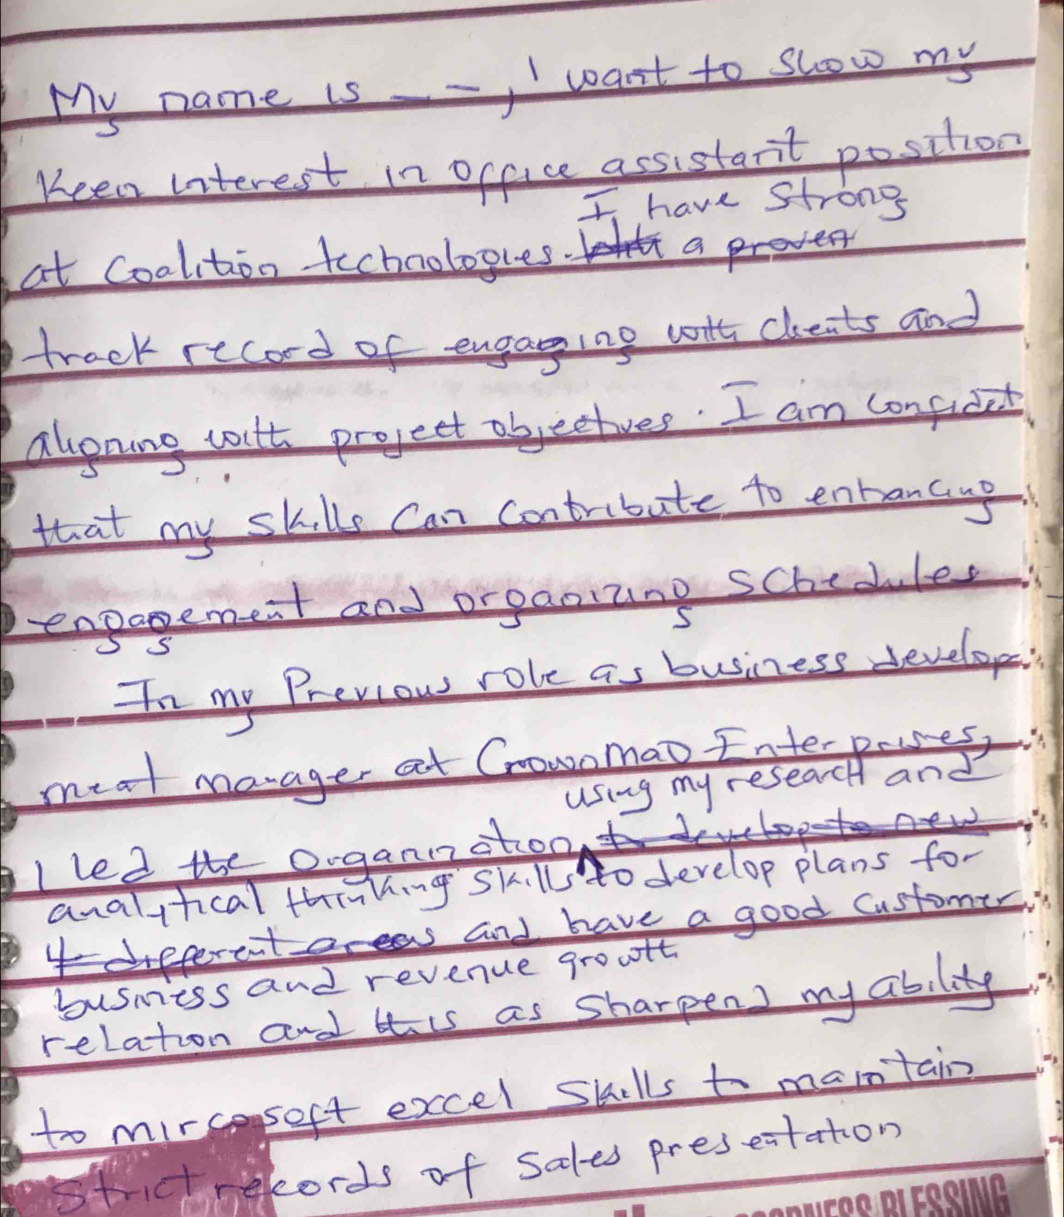 My name is _ _, I want to show my
Keen interest in office assistant position
I have strong
at Coalition technologies. With a proven
track record of engaging with clients and
aligning with project objectives. I am confidet
that my skills can contribute to enhancing
engagement and organizing schedules
In my Previous role as business develop
ment manager at CrownMaD Enterprises,
using my research and
I led the organization to develop to new
analytical thinking skills to develop plans for
4 different areas and have a good customer
business and revenue growth
relation and this as sharpend my ability
to mircosoft excel skills to maintain
strict records of sales presentation
BLESSING